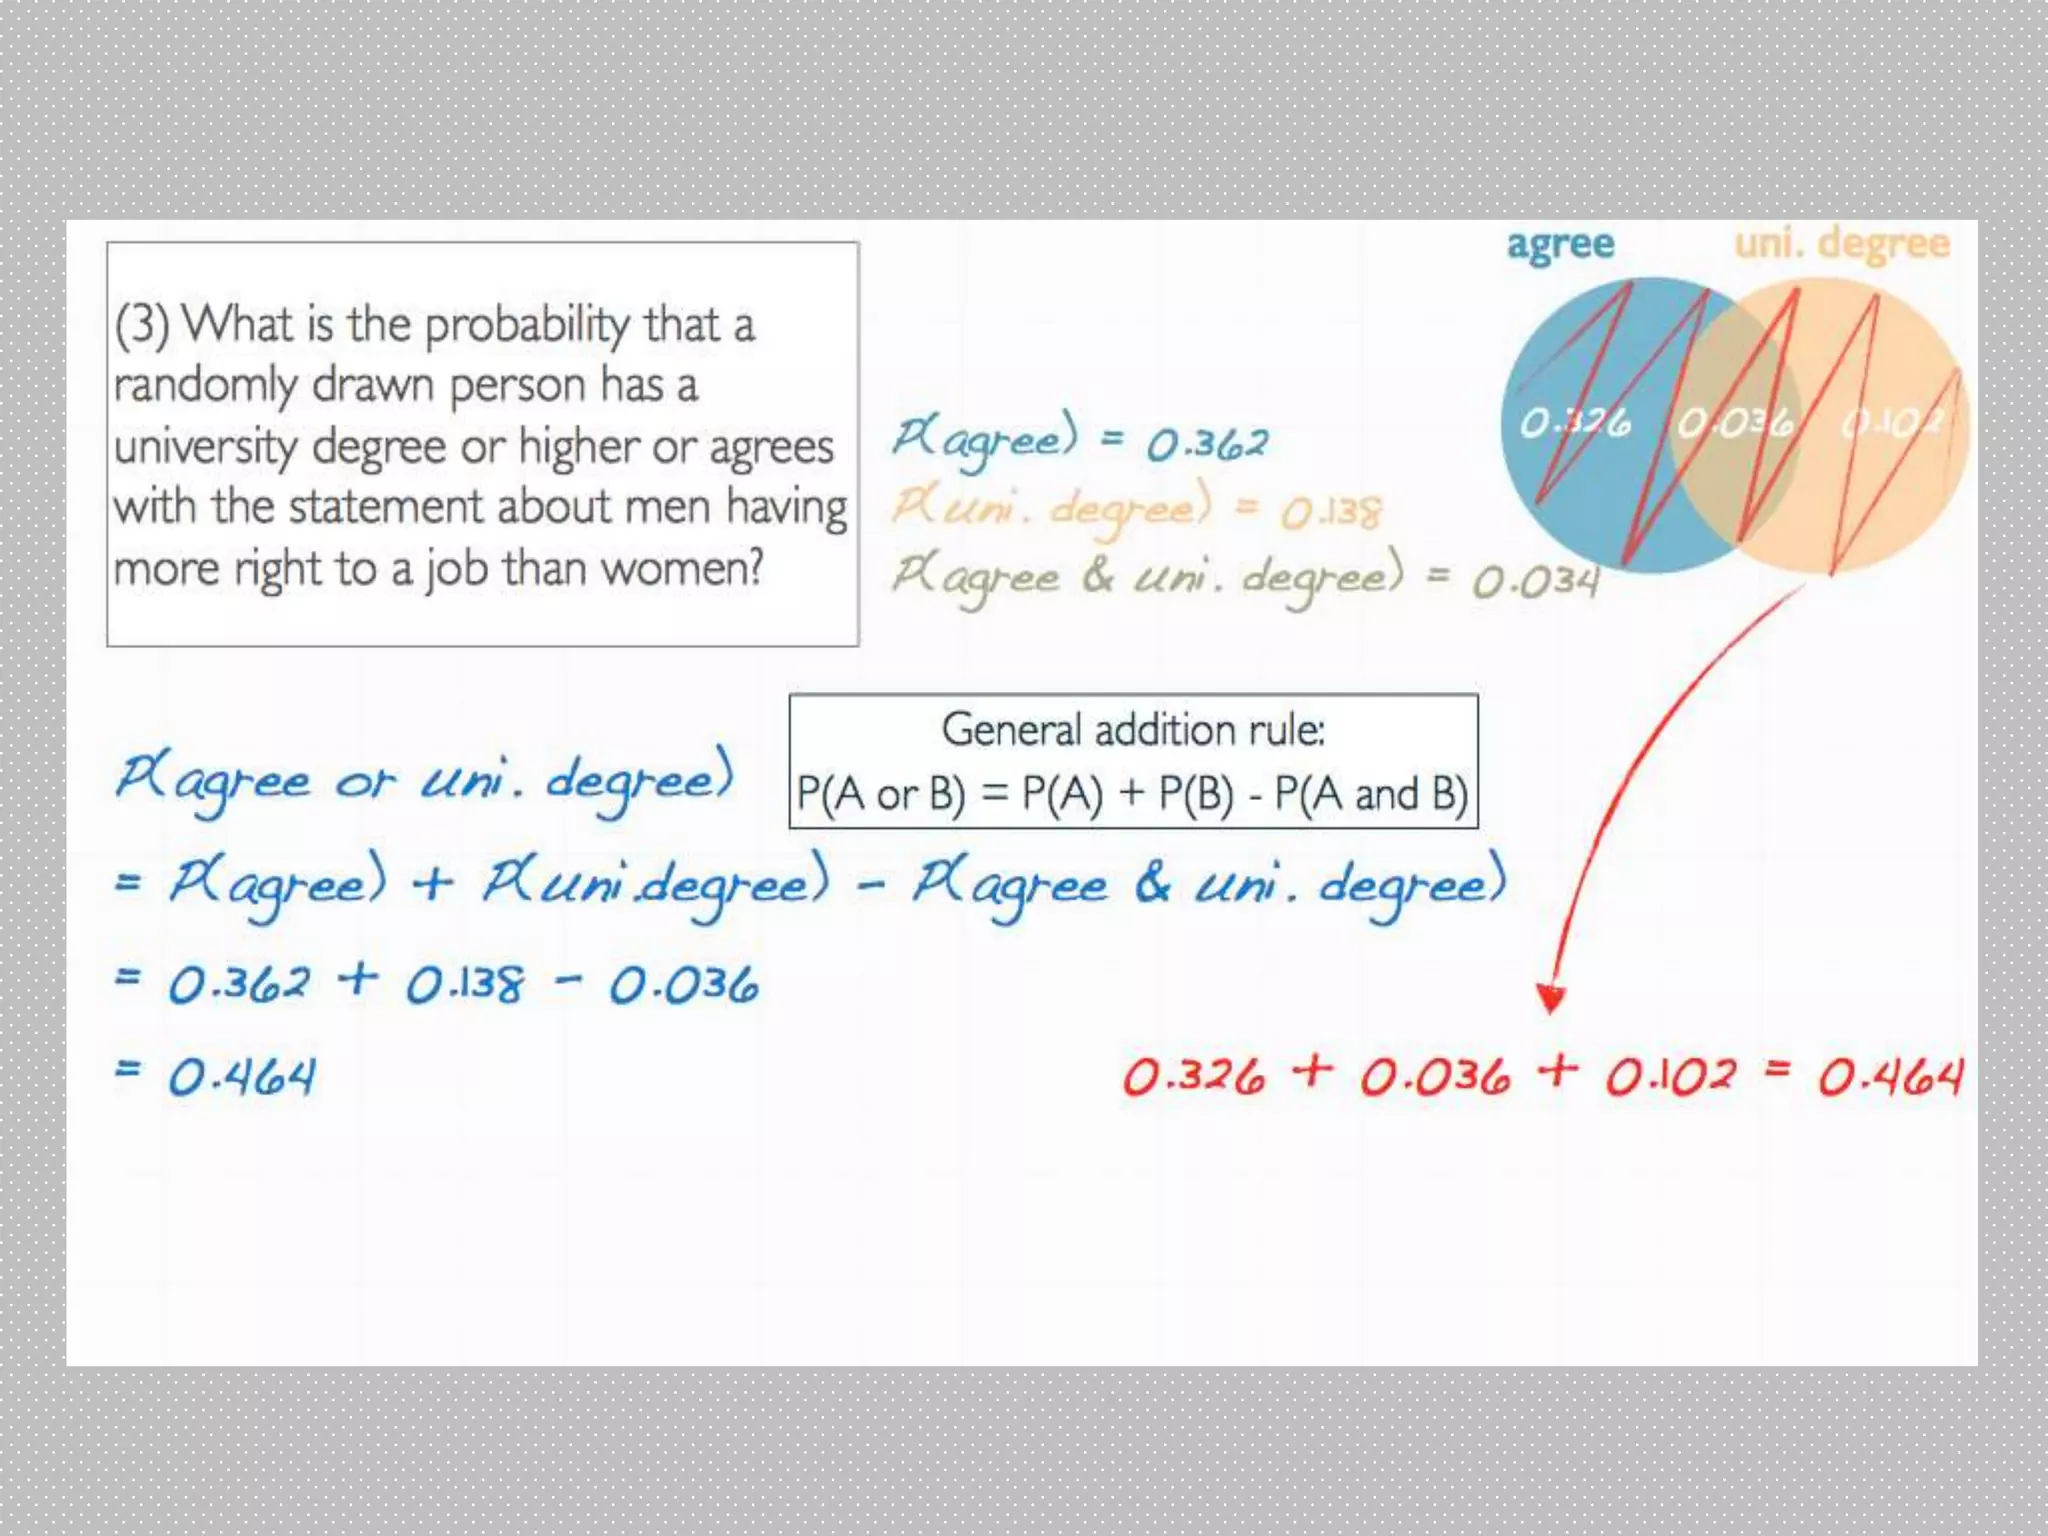 (3) What is the probability that a
randomly drawn person has a
university degree or higher or agrees
with the statement about men having
more right to a job than women?
agree
uni. degree
0.326
0.036
0.102
P(agree) = 0.362
P(uni. degree) = 0.138
P(agree & uni. degree) = 0.034
General addition rule:
P(A or B) = P(A) + P(B) - P(A and B)
P(agree or uni. degree)
= P(agree) + P(uni.degree) - P(agree & uni. degree)
= 0.362 + 0.138 - 0.036
= 0.464
0.326 + 0.036 + 0.102 = 0.464